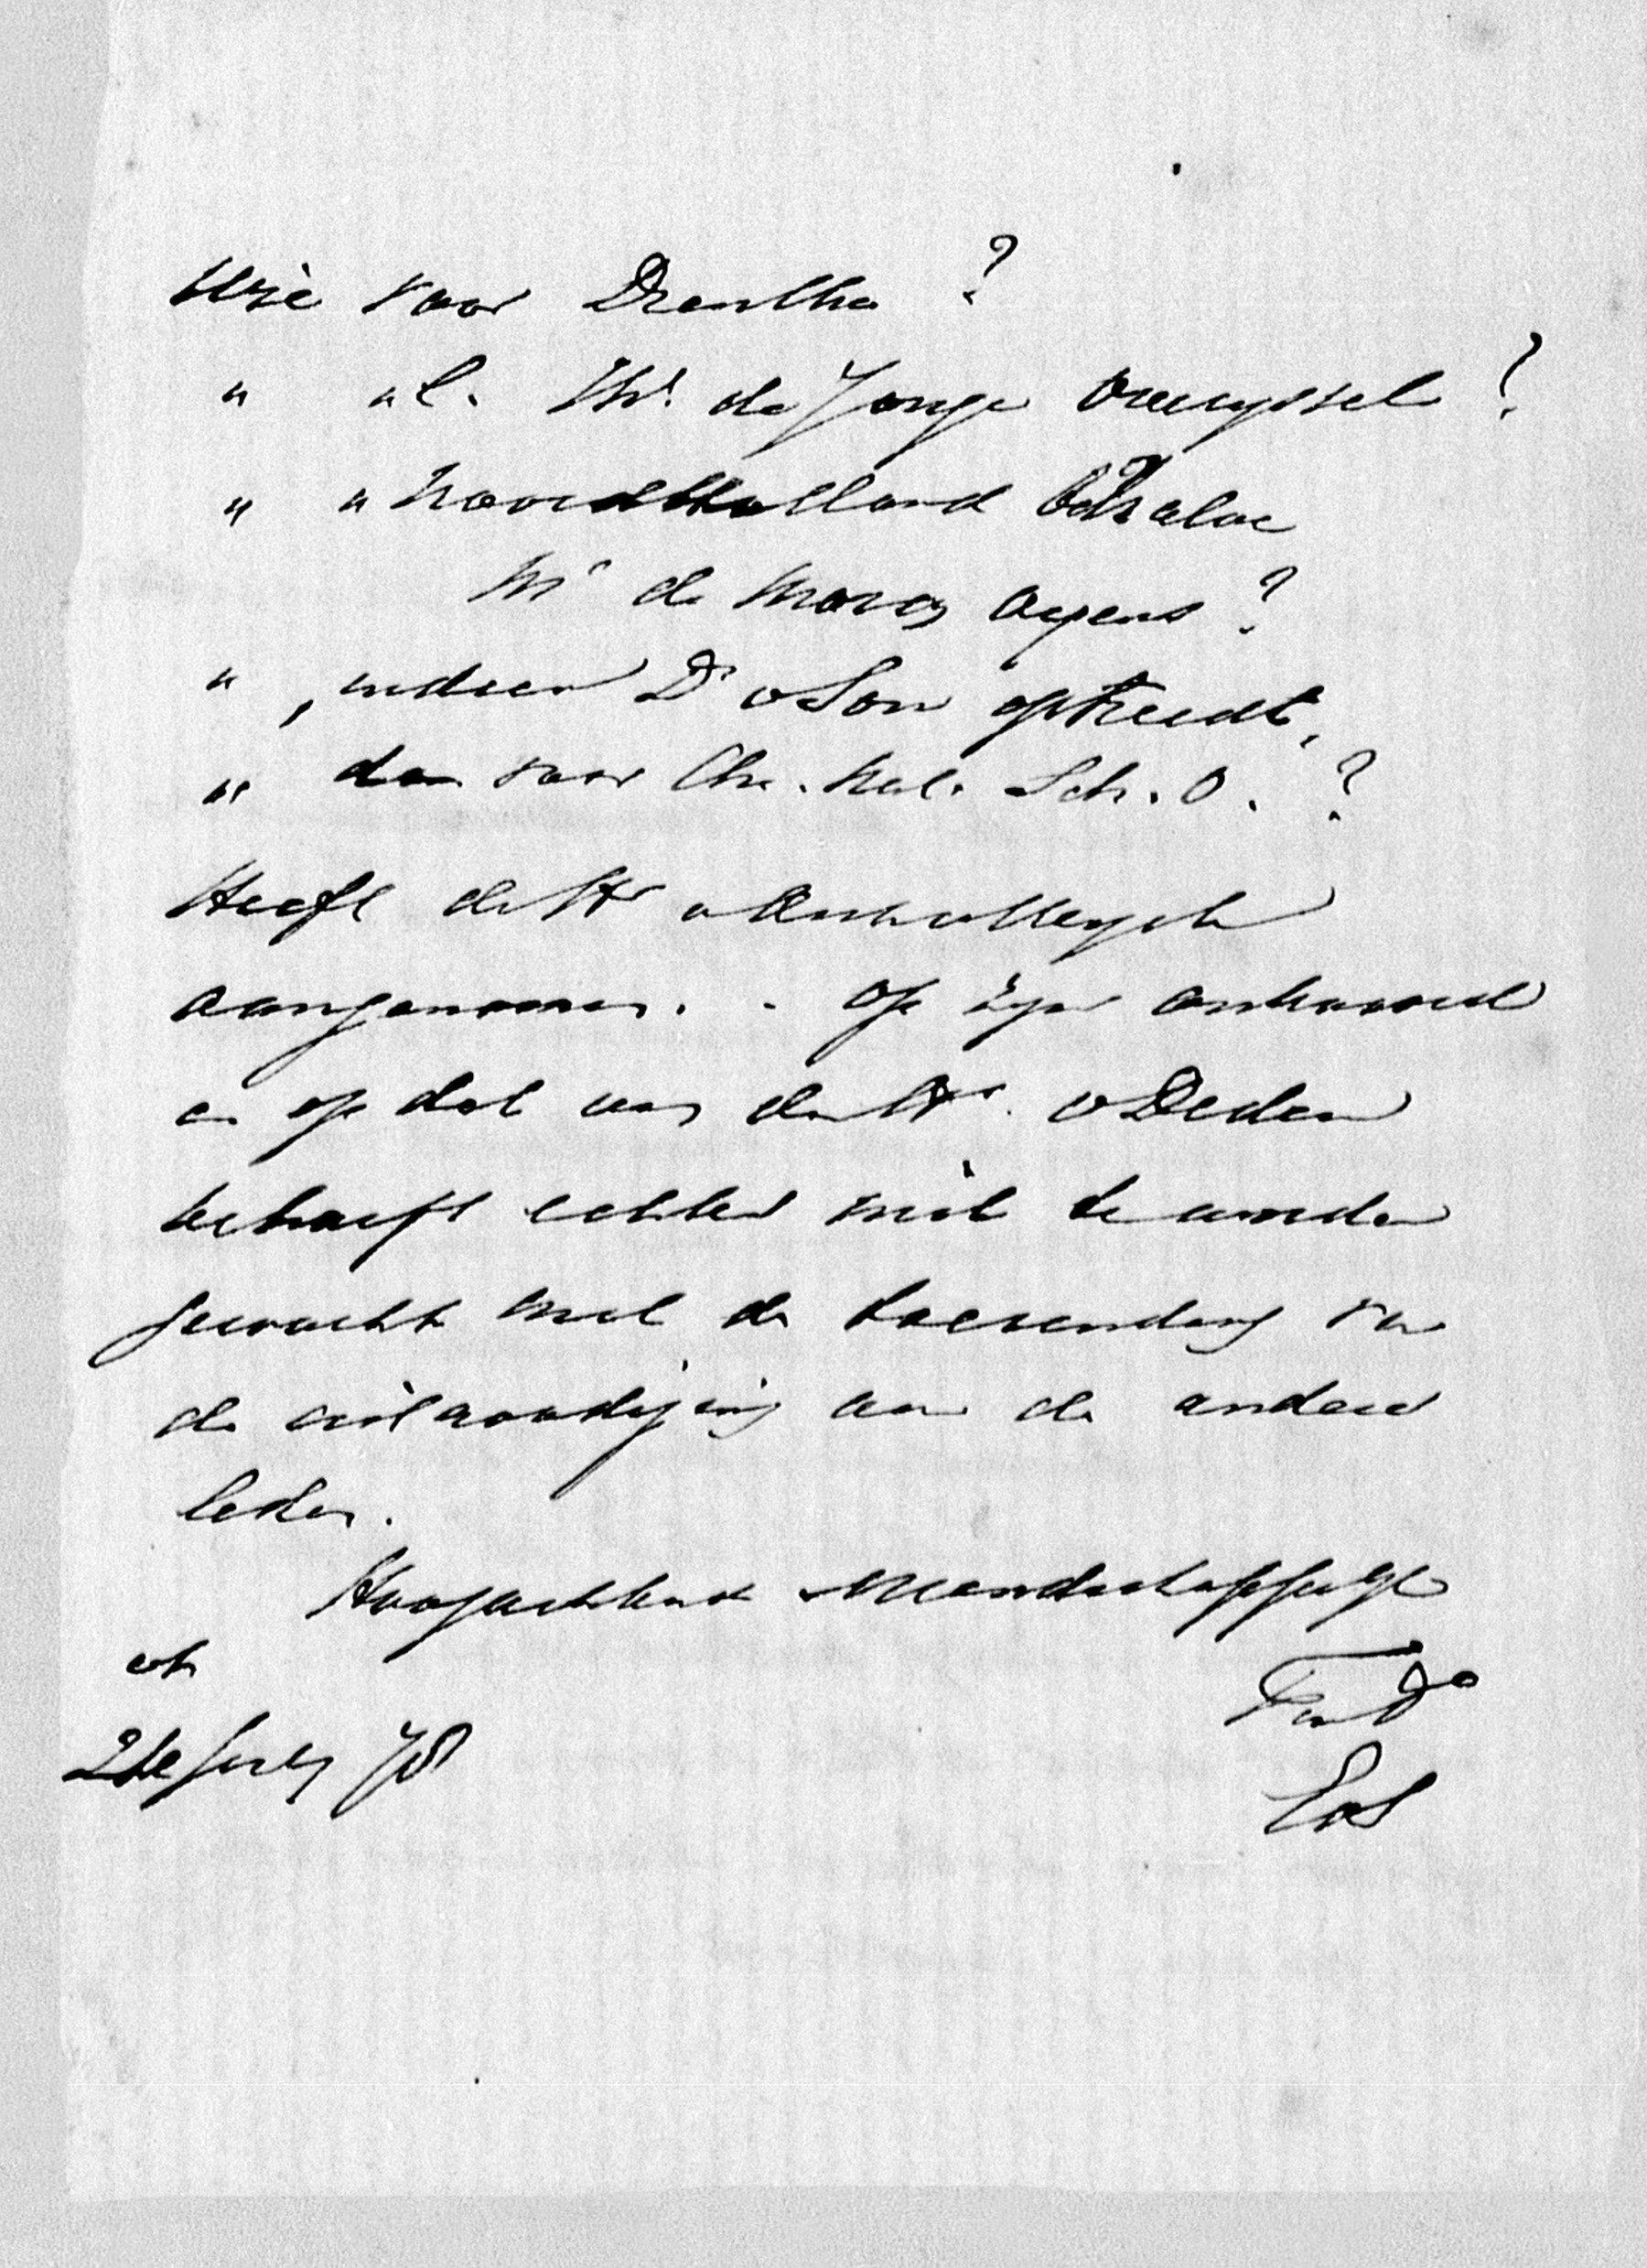 Wie voor Drenthe ?
" " l. Mr. de Jonge Overyssel ?
" " Noord Holland
Mr de Marez Oyens ?
" , indien Dr v Son optreedt,
" dan voor Chr. Nat. Sch. O. ?
Heeft de Hr
aangenomen. - Op zyn antwoord
en op dat van den Hr. v Deden
behoeft echter niet te worden
gewacht met de toezending van
de uitnoodiging aan de andere
leden.
Hoogachtend & vriendschappelyk
July 78